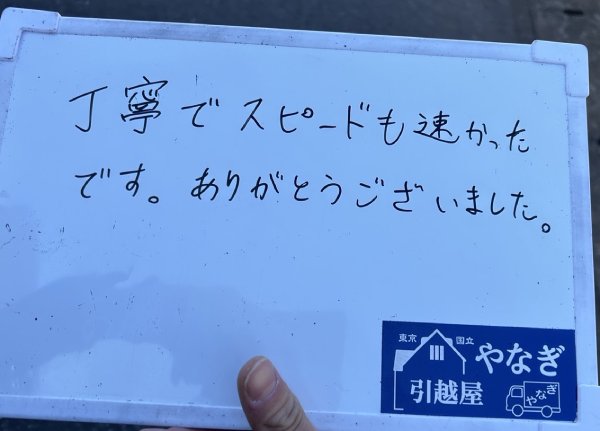 丁寧でスピードも速かった
です。ありがとうございました。
東京 国立
やなぎ
引越屋
やなぎ